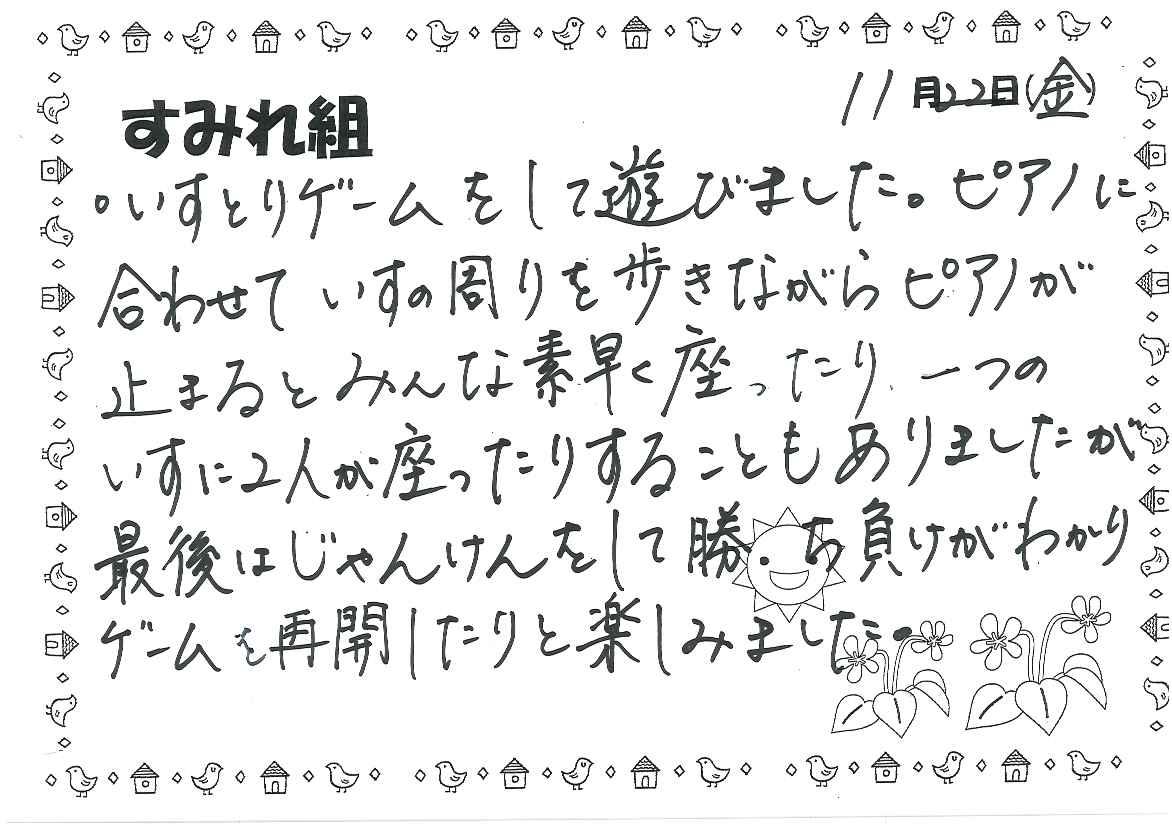 11月22日(金)
すみれ組
○いすとりゲームをして遊びました。ピアノに
合わせていすの周りを歩きながらピアノが
止まるとみんな素早く座ったり、一つの
いすに2人が座ったりすることもありましたが
最後はじゃんけんをして勝ち負けがわかり
ゲームを再開したりと楽しみました。